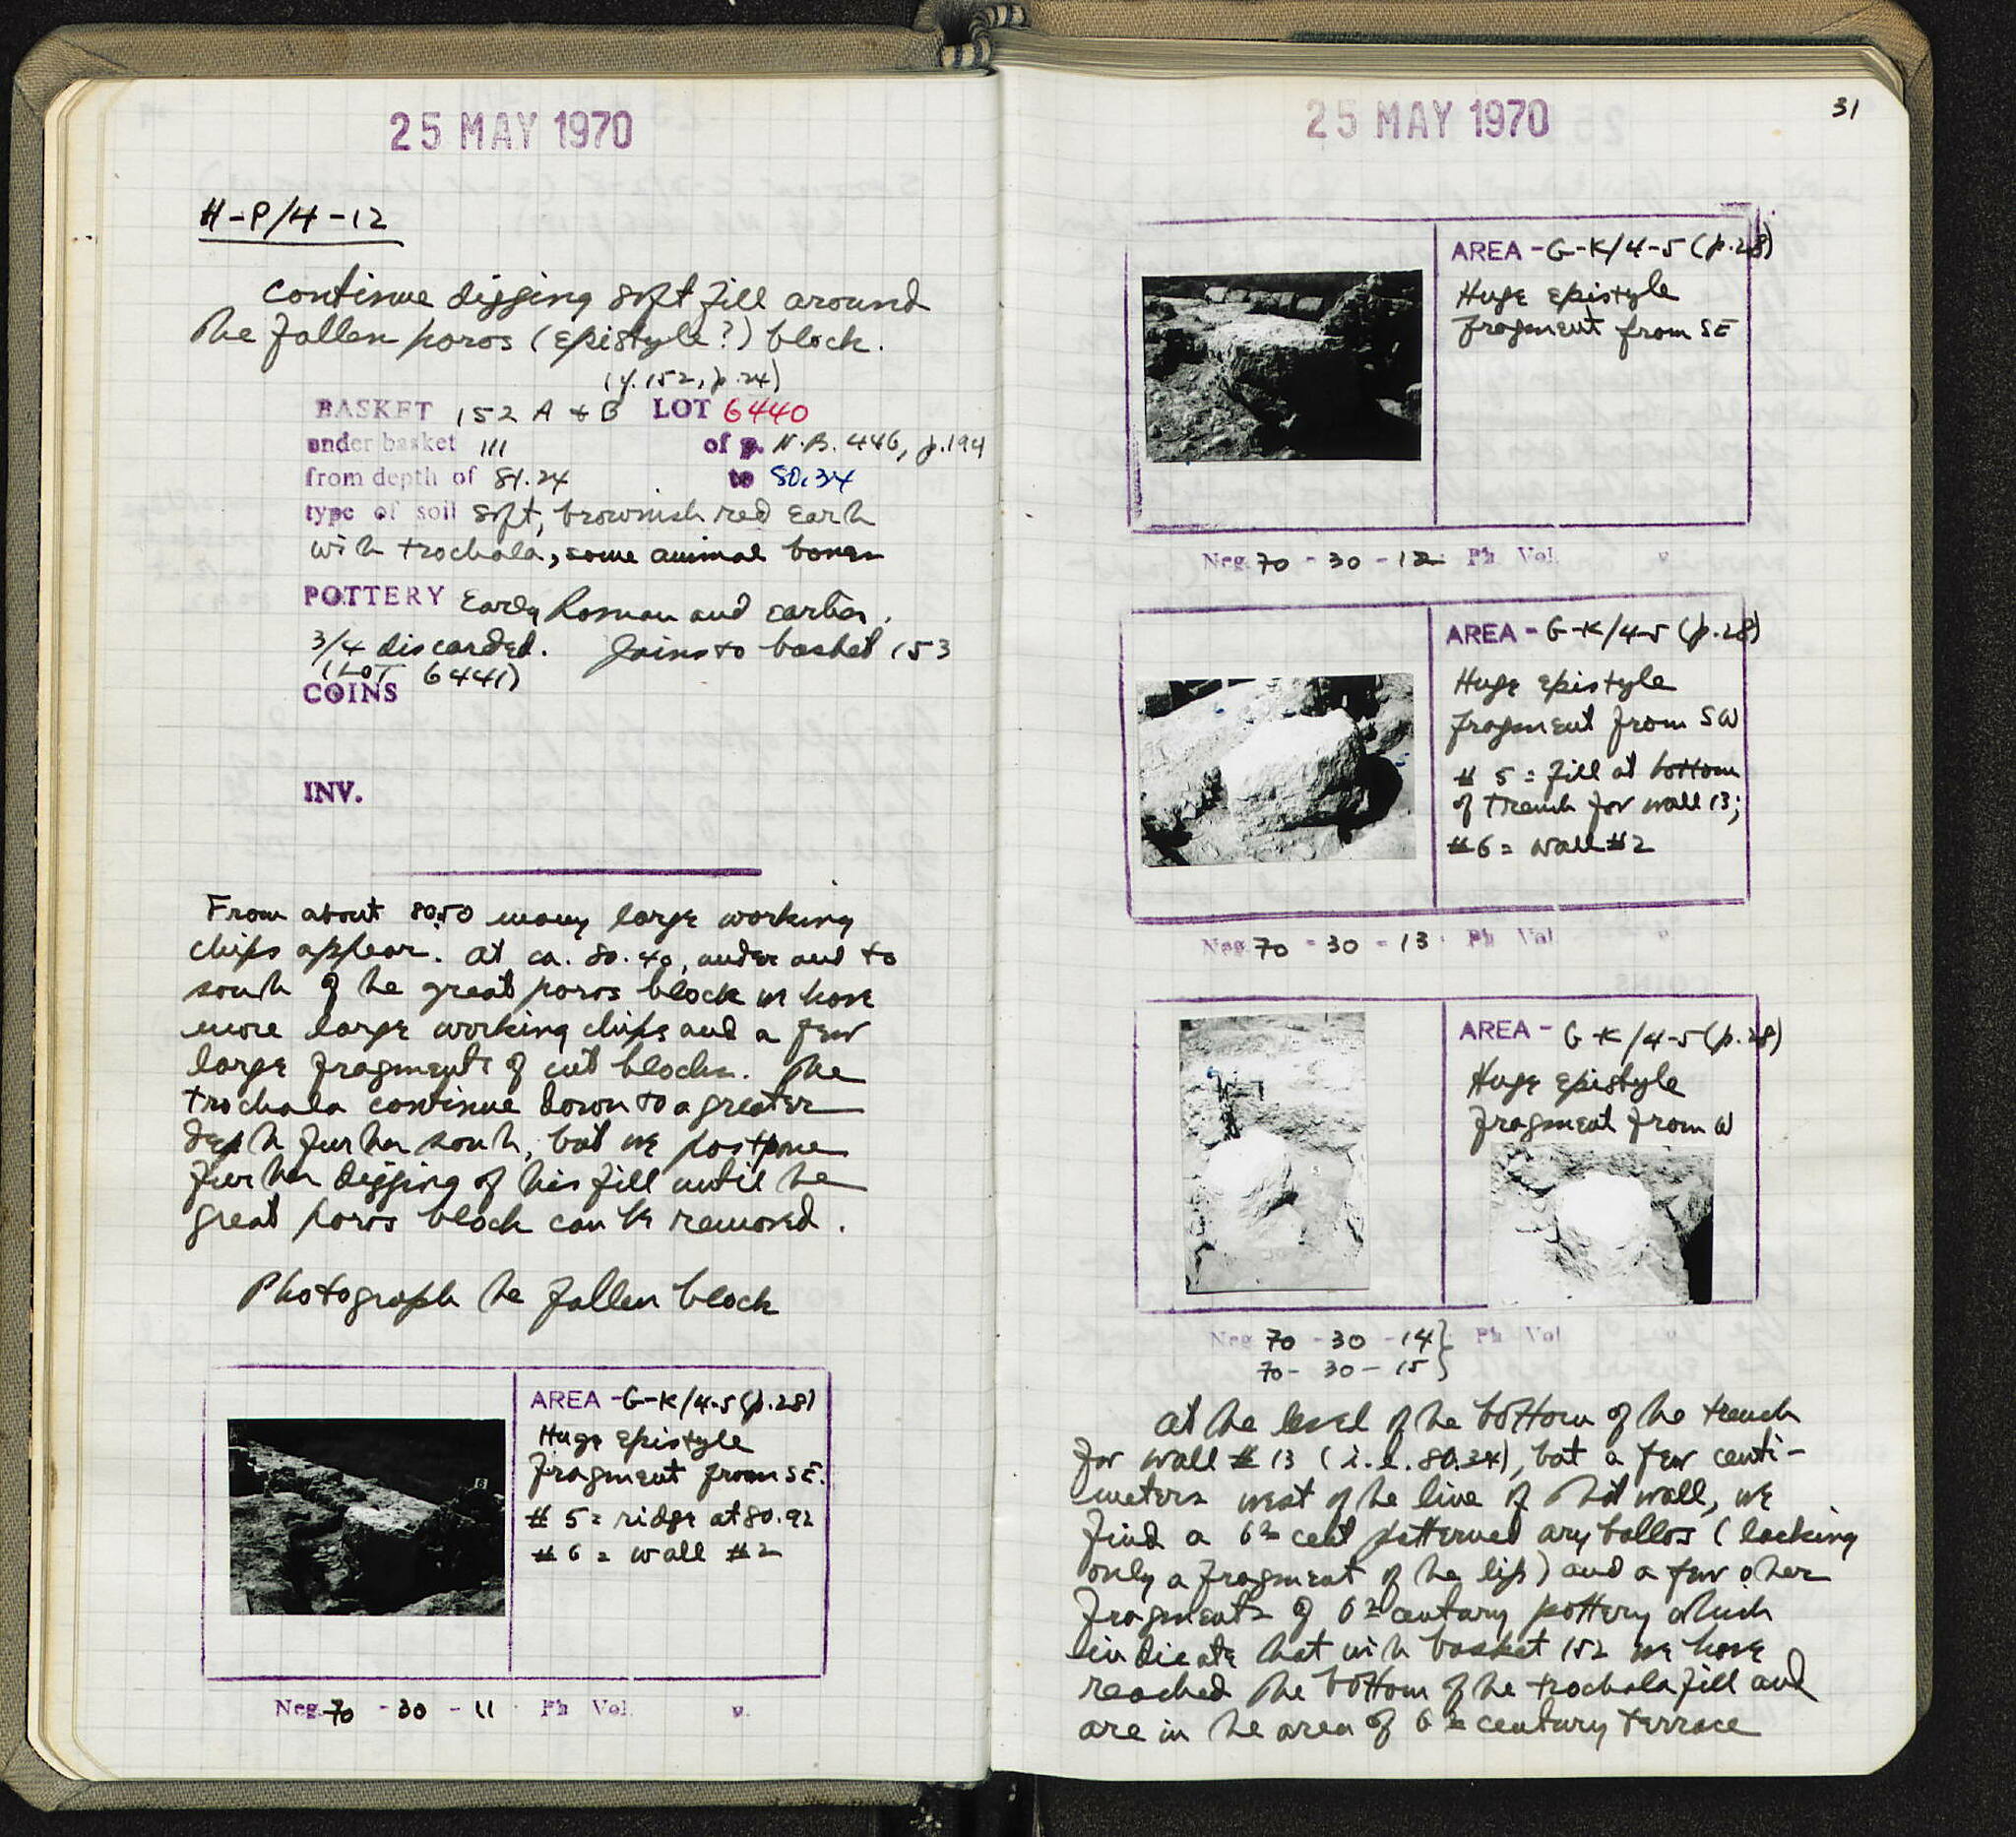 25 MAY 1970
H-P/4-12
Continue digging soft fill around
the fallen poros (epistyle?) block.
(cf. 152, p.24)
BASKET 152 A + B LOT 6440
under basket 111 of p. N.B. 446, p.194
from depth of 81.24 to 80.34
type of soil soft, brownish red earth
with trochala, some animal bones
POTTERY Early Roman and earlier.
3/4 discarded. Joins to basket 153
(LOT 6441)
COINS
INV.
From about 80.50 many large working
chips appear. At ca. 80.40, under and to
south of the great poros block we have
more large working chips and a few
large fragments of cut blocks. The
trochala continue down to a greater
depth further south, but we postpone
further digging of this fill until the
great poros block can be removed.
Photograph the fallen block
AREA - G-K/4-5 (p.28)
Huge epistyle
fragment from SE.
# 5 = ridge at 80.92
# 6 = wall #2
Neg. 70 - 30 - 11 Ph Vol. p.
31
25 MAY 1970
AREA - G-K/4-5 (p.28)
Huge epistyle
fragment from SE
Neg. 70 - 30 - 12 Ph Vol. p.
AREA - G-K/4-5 (p.28)
Huge epistyle
fragment from SW
# 5 = fill at bottom
of trench for wall 13;
#6 = wall #2
Neg. 70 - 30 - 13 Ph Vol. p.
AREA - G-K/4-5 (p.28)
Huge epistyle
fragment from W
Neg. 70 - 30 - 14} Ph Vol p.
70 - 30 - 15}
At the level of the bottom of the trench
for wall # 13 (i.e. 80.34), but a few centi-
meters west of the line of that wall, we
find a 6th cent patterned aryballos (lacking
only a fragment of the lip) and a few other
fragments of 6th century pottery which
indicate that with basket 152 we have
reached the bottom of the trochala fill and
are in the area of 6th century terrace